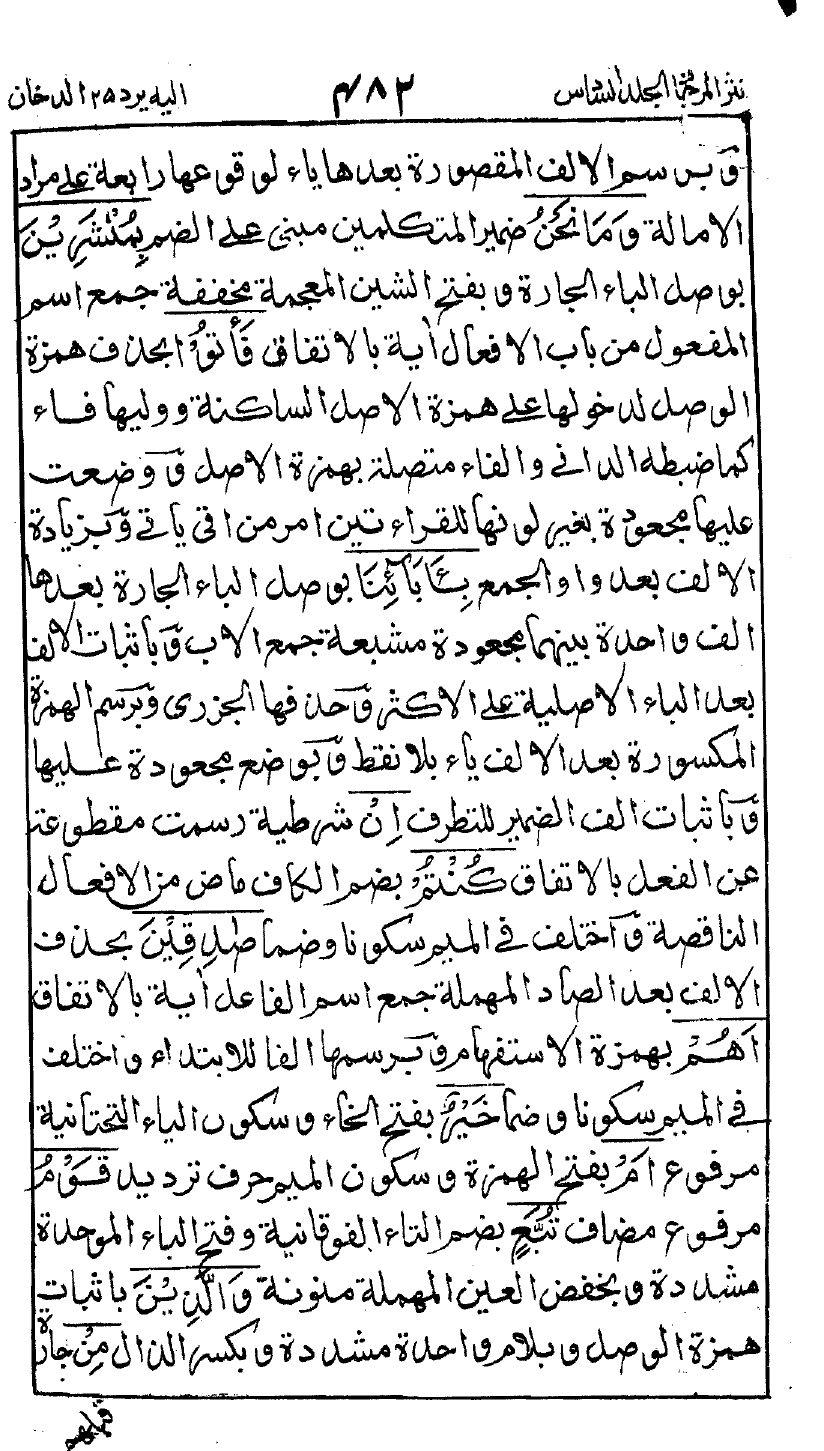 نثر المرجان الجلد السادس ٤٨٢ اليه يرد ٢٥ الدخان
وَبرسم الالف المقصورة بعدها ياء لوقوعها رابعة على مراد
الامالة وَمَا نَحْنُ ضمير المتكلمين مبنى على الضم بِمُنْشَرِيْنَ
بوصل الباء الجارة وبفتح الشين المعجمة مخففة جمع اسم
المفعول من باب الافعال أية بالاتفاق فَأْتُوْا بحذف همزة
الوصل لدخولها على همزة الاصل الساكنة ووليها فاء
كما ضبطه الدانى والفاء متصلة بهمزة الاصل وَوضعت
عليها مجعودة بغير لونها للقراءتين امر من اتى ياتى وَبزيادة
الالف بعد واو الجمع بِـَٔابَآئِنَا بوصل الباء الجارة بعدها
الف واحدة بينهما مجعودة مشبعة جمع الاب وَباثبات الالف
بعد الباء الاصلية على الاكثر وَحذفها الجزرى وَبرسم الهمزة
المكسورة بعد الالف ياء بلا نقط وَبوضع مجعودة عليها
وَباثبات الف الضمير للتطرف اِنْ شرطية رسمت مقطوعة
عن الفعل بالاتفاق كُنْتُمْ بضم الكاف ماض من الافعال
الناقصة وَاختلف فى الميم سكونا وضما صٰدِقِيْنَ بحذف
الالف بعد الصاد المهملة جمع اسم الفاعل أية بالاتفاق
اَهُمْ بهمزة الاستفهام وَبرسمها الفا للابتداء واختلف
فى الميم سكونا وضما خَيْرٌ بفتح الخاء وسكون الياء التحتانية
مرفوع اَمْ بفتح الهمزة وسكون الميم حرف ترديد قَوْمُ
مرفوع مضاف تُبَّعٍ بضم التاء الفوقانية وفتح الباء الموحدة
مشددة وبخفض العين المهملة منونة وَالَّذِيْنَ باثبات
همزة الوصل وبلام واحدة مشددة وبكسر الذال مِنْ جارة
قبلهم